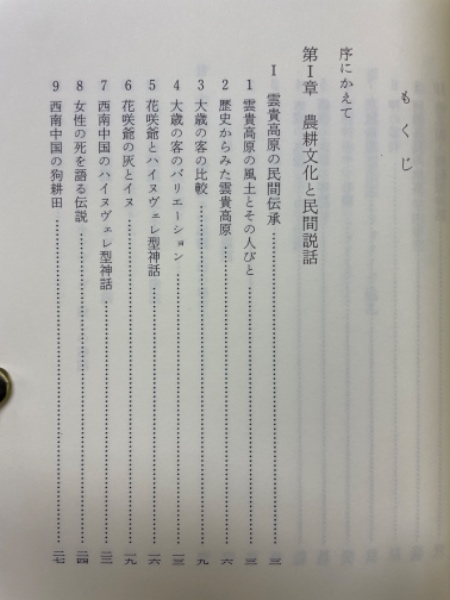 もくじ
序にかえて
第Ⅰ章 農耕文化と民間説話
Ⅰ 雲貴高原の民間伝承……三
1 雲貴高原の風土とその人びと……三
2 歴史からみた雲貴高原……六
3 大歳の客の比較……九
4 大歳の客のバリエーション……一三
5 花咲爺とハイヌヴェレ型神話……一六
6 花咲爺の灰とイヌ……一九
7 西南中国のハイヌヴェレ型神話……二二
8 女性の死を語る伝説……二四
9 西南中国の狗耕田……二七